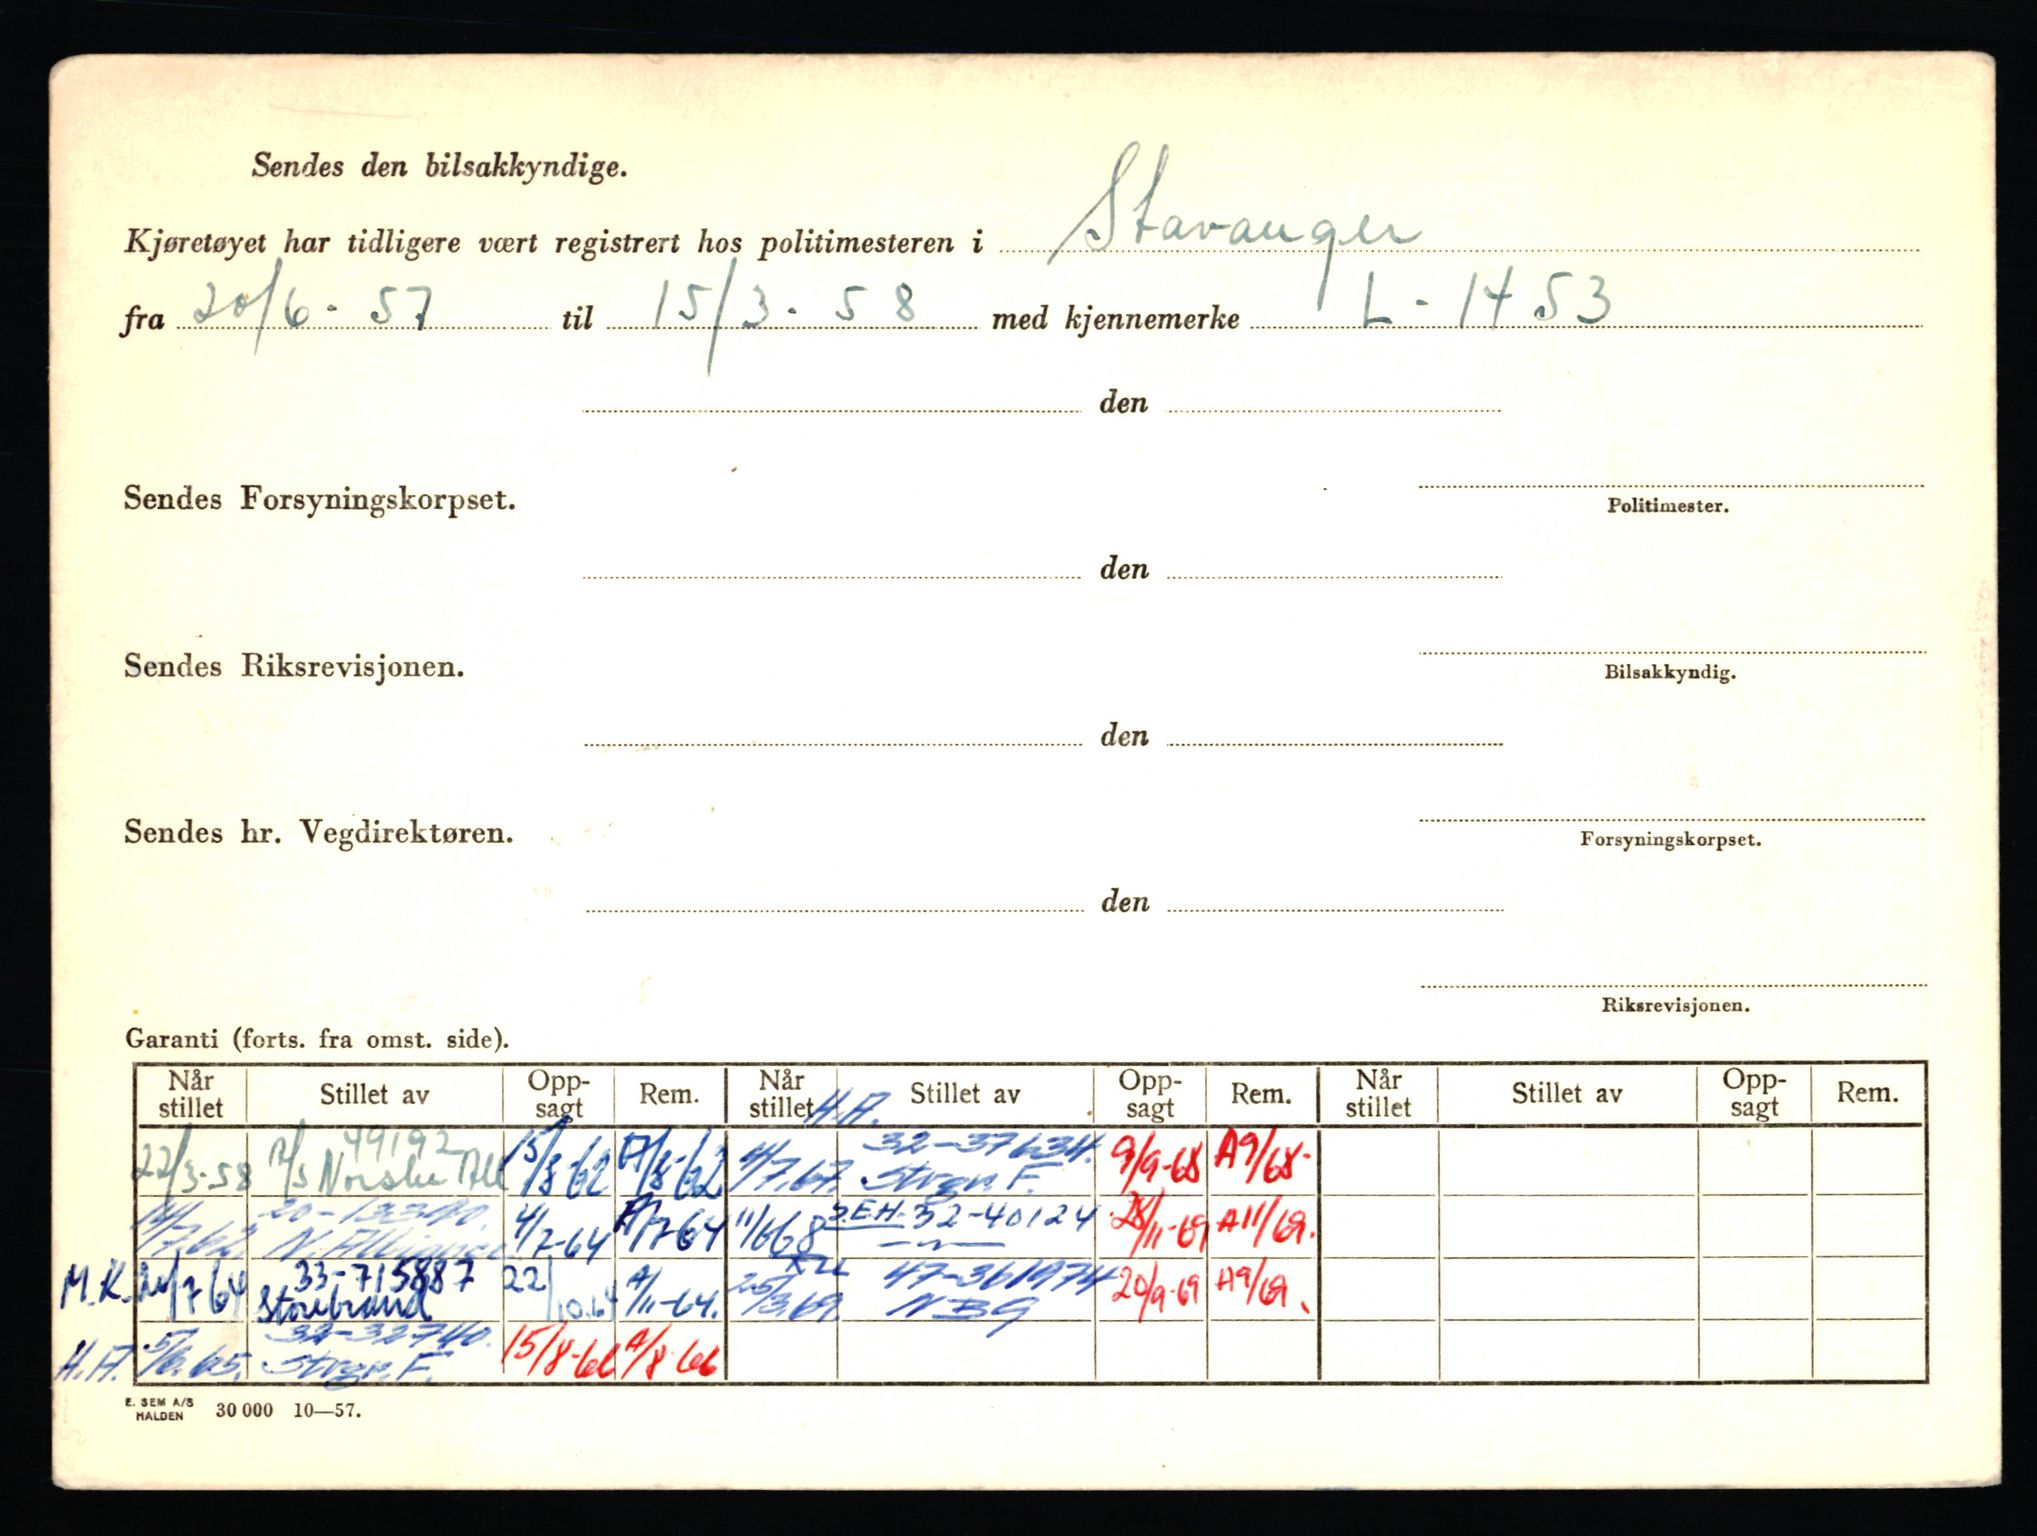 Sendes den bilsakkyndige.
Kjøretøyet har tidligere vært registrert hos politimesteren i Stavanger
fra 20/6-57 til 15/3-58 med kjennemerke L-1453
den
Sendes Forsyningskorpset.
Politimester.
den
Sendes Riksrevisjonen.
Bilsakkyndig.
den
Sendes hr. Vegdirektøren.
Forsyningskorpset.
den
Riksrevisjonen.
Garanti (forts. fra omst. side).
Når stillet Stillet av Opp-sagt Rem. Når stillet Stillet av Opp-sagt Rem. Når stillet Stillet av Opp-sagt Rem.
H.A.
49192 32-37634.
22/3-58 A/S Norske All 15/8-62 A/8-62 4/7.67. Strgr. F. 9/9-68 A9/68-
20-13340. S.E.H. 32-40124
14/7.62 N. Alliance 4/7-64 A/7-64 11/668 28/11-69 A11/69.
33-715887 47-361974
M.K. 20/7 64 Storebrand 22/10.64 A/11-64. 25/3.69. NBG 20/9-69 A9/69.
32-32740.
H.A. 5/6.65. Strgr. F. 15/8-66 A/8-66
E. SEM A/S
HALDEN 30 000 10—57.